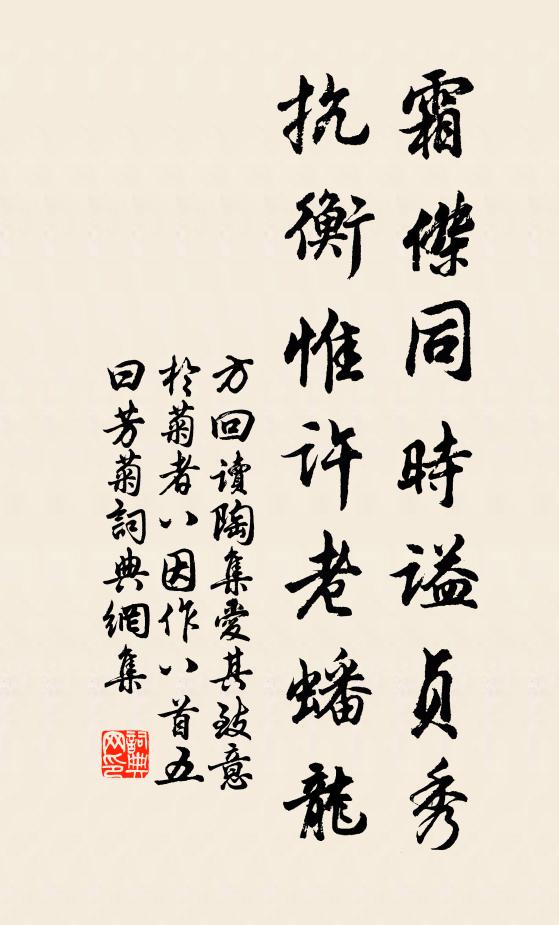 霜傑同時謚貞秀
抗衡惟許老蟠龍
方回讀陶集愛其致意
於菊者八因作八首五
曰芳菊詞典網集
詞典网印